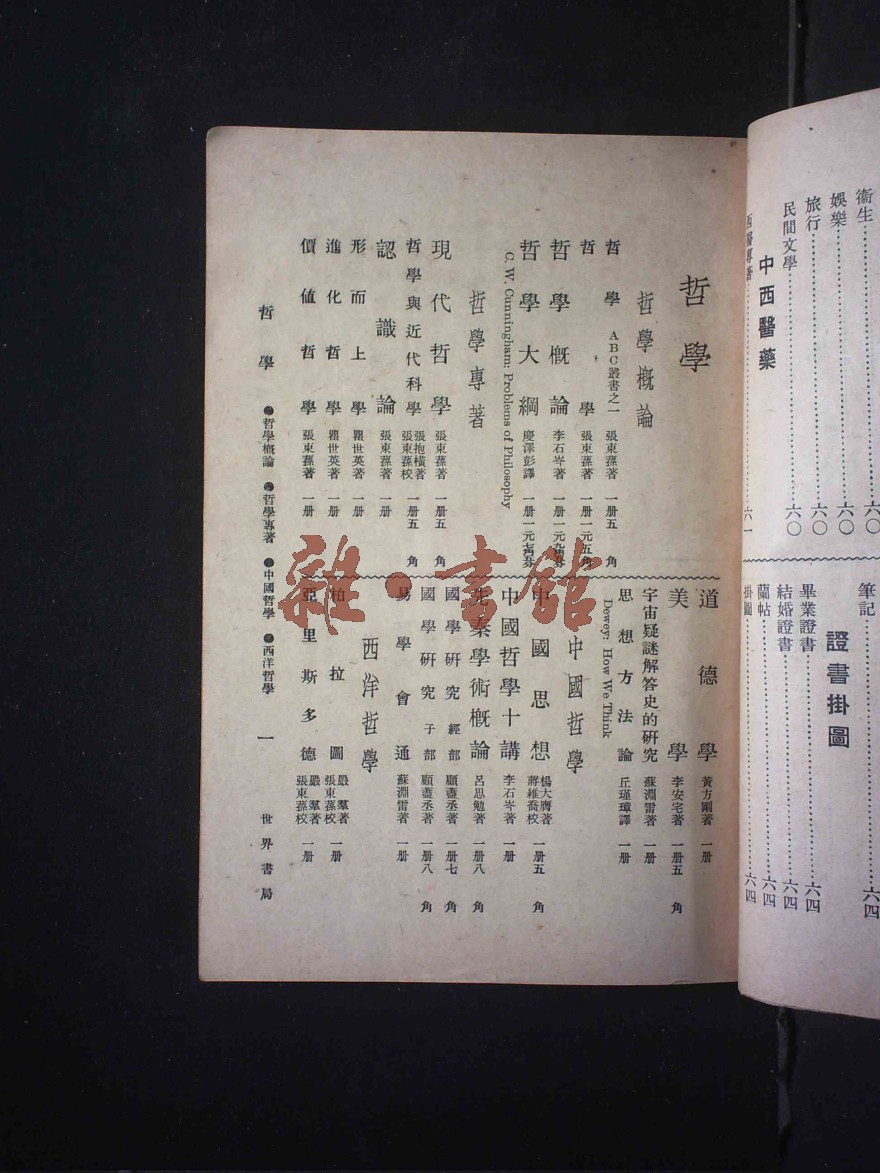 衞生……………六〇
娛樂……………六〇
旅行……………六〇
民間文學……………六〇
中西醫藥
西醫專著……………六一
筆記……………六四
證書掛圖
畢業證書……………六四
結婚證書……………六四
蘭帖……………六四
掛圖……………六四
哲學
哲學概論
哲學 ABC叢書之一 張東蓀著 一册 五角
哲學 張東蓀著 一册 一元五角
哲學概論 李石岑著 一册 一元九角
哲學大綱 慶澤彭譯 一册 一元七角
C. W. Cunningham: Problems of Philosophy
哲學專著
現代哲學 張東蓀著 一册 五角
哲學與近代科學 張抱橫著 張東蓀校 一册 五角
認識論 張東蓀著 一册
形而上學 瞿世英著 一册
進化哲學 瞿世英著 一册
價值哲學 張東蓀著 一册
道德學 黃方剛著 一册
美學 李安宅著 一册 五角
宇宙疑謎解答史的研究 蘇淵雷著 一册
思想方法論 丘瑾璋譯 一册
Dewey: How We Think
中國哲學
中國思想 楊大膺著 蔣維喬校 一册 五角
中國哲學十講 李石岑著 一册
先秦學術概論 呂思勉著 一册 八角
國學研究 經部 顧藎丞著 一册 七角
國學研究 子部 顧藎丞著 一册 八角
易學會通 蘇淵雷著 一册
西洋哲學
柏拉圖 嚴羣著 張東蓀校 一册
亞里斯多德 嚴羣著 張東蓀校 一册
哲學 ●哲學概論 ●哲學專著 ●中國哲學 ●西洋哲學 一 世界書局
雜·書館